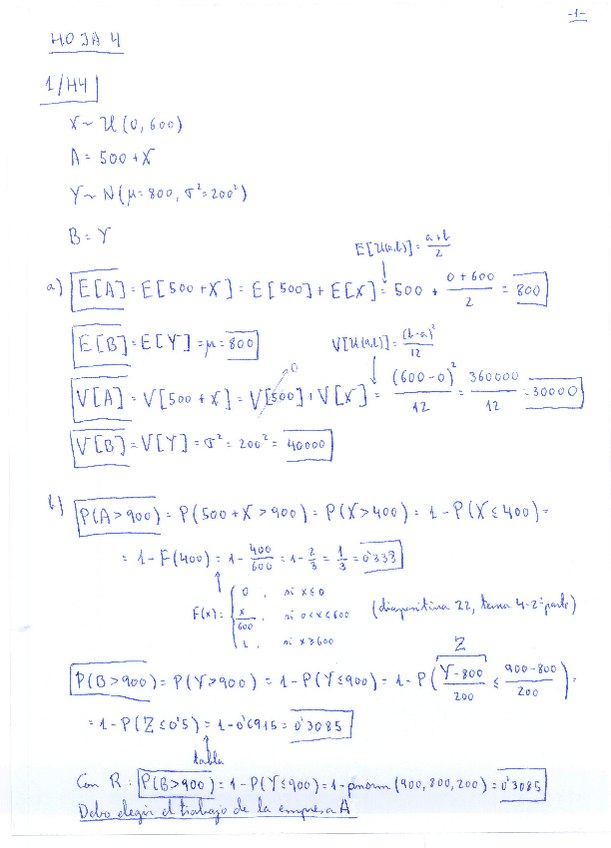 -1-
HOJA 4
1/H4
X ~ U(0, 600)
A = 500 + X
Y ~ N(μ = 800, σ² = 200²)
B = Y
E[U(a,b)] = (a+b)/2
a) E[A] = E[500 + X] = E[500] + E[X] = 500 + (0 + 600)/2 = 800
E[B] = E[Y] = μ = 800
V[U(a,b)] = (b-a)²/12
0
V[A] = V[500 + X] = V[500] + V[X] = (600 - 0)²/12 = 360000/12 = 30000
V[B] = V[Y] = σ² = 200² = 40000
b) P(A > 900) = P(500 + X > 900) = P(X > 400) = 1 - P(X ≤ 400) =
= 1 - F(400) = 1 - 400/600 = 1 - 2/3 = 1/3 = 0'333
F(x) = { 0, si x ≤ 0
x/600, si 0 < x ≤ 600 (diapositiva 22, tema 4-2ª parte)
1, si x ≥ 600
Z
P(B > 900) = P(Y > 900) = 1 - P(Y ≤ 900) = 1 - P((Y - 800)/200 ≤ (900 - 800)/200) =
= 1 - P(Z ≤ 0'5) = 1 - 0'6915 = 0'3085
tabla
Con R: P(B > 900) = 1 - P(Y ≤ 900) = 1 - pnorm(900, 800, 200) = 0'3085
Debo elegir el trabajo de la empresa A